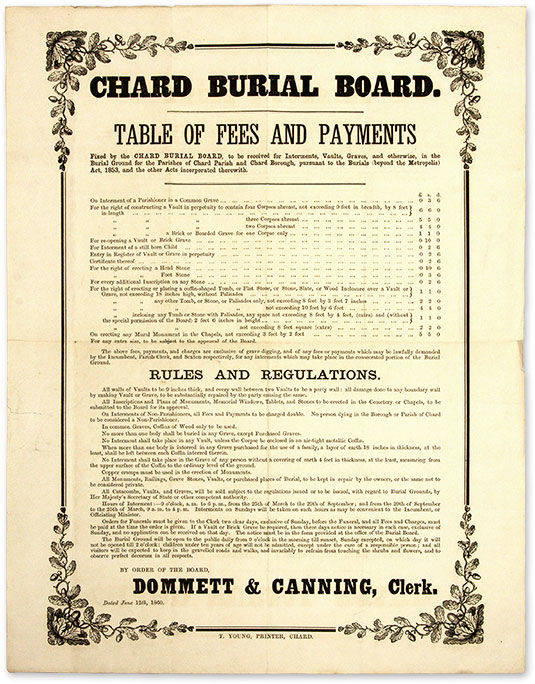 CHARD BURIAL BOARD.
TABLE OF FEES AND PAYMENTS
Fixed by the CHARD BURIAL BOARD, to be received for Interments, Vaults, Graves, and otherwise, in the
Burial Ground for the Parishes of Chard Parish and Chard Borough, pursuant to the Burials (beyond the Metropolis)
Act, 1853, and the other Acts incorporated therewith.
£ s. d.
On Interment of a Parishioner in a Common Grave 0 3 6
For the right of constructing a Vault in perpetuity to contain four Corpses abreast, not exceeding 9 feet in breadth, by 8 feet
in length 6 6 0
„ „ „ three Corpses abreast 5 5 0
„ „ „ two Corpses abreast 4 4 0
„ „ a Brick or Boarded Grave for one Corpse only 1 1 0
For re-opening a Vault or Brick Grave 0 10 0
For Interment of a still born Child 0 2 6
Entry in Register of Vault or Grave in perpetuity 0 2 6
Certificate thereof 0 2 6
For the right of erecting a Head Stone 0 10 6
„ „ Foot Stone 0 3 6
For every additional Inscription on any Stone 0 2 6
For the right of erecting or placing a coffin-shaped Tomb, or Flat Stone, or Stone, Slate, or Wood Inclosure over a Vault or
Grave, not exceeding 18 inches high, without Palisades 1 1 0
„ „ any other Tomb, or Stone, or Palisades only, not exceeding 8 feet by 3 feet 7 inches 2 2 0
„ „ „ not exceeding 10 feet by 6 feet 4 4 0
„ „ inclosing any Tomb or Stone with Palisades, any space not exceeding 8 feet by 4 feet, (extra) and (without)
the special permission of the Board) 2 feet 6 inches in height 1 1 0
„ „ „ not exceeding 8 feet square (extra) 2 2 0
On erecting any Mural Monument in the Chapels, not exceeding 3 feet by 2 feet 5 5 0
For any extra size, to be subject to the approval of the Board.
The above fees, payments, and charges are exclusive of grave digging, and of any fees or payments which may be lawfully demanded
by the Incumbent, Parish Clerk, and Sexton respectively, for any interments which may take place in the consecrated portion of the Burial
Ground.
RULES AND REGULATIONS.
All walls of Vaults to be 9 inches thick, and every wall between two Vaults to be a party wall: all damage done to any boundary wall
by making Vault or Grave, to be substantially repaired by the party causing the same.
All Inscriptions and Plans of Monuments, Memorial Windows, Tablets, and Stones to be erected in the Cemetery or Chapels, to be
submitted to the Board for its approval.
On Interments of Non-Parishioners, all Fees and Payments to be charged double. No person dying in the Borough or Parish of Chard
to be considered a Non-Parishioner.
In common Graves, Coffins of Wood only to be used.
No more than one body shall be buried in any Grave, except Purchased Graves.
No Interment shall take place in any Vault, unless the Corpse be enclosed in an air-tight metallic Coffin.
When more than one body is interred in any Grave purchased for the use of a family, a layer of earth 18 inches in thickness, at the
least, shall be left between each Coffin interred therein.
No Interment shall take place in the Grave of any person without a covering of earth 4 feet in thickness, at the least, measuring from
the upper surface of the Coffin to the ordinary level of the ground.
Copper cramps must be used in the erection of Monuments.
All Monuments, Railings, Grave Stones, Vaults, or purchased places of Burial, to be kept in repair by the owners, or the same not to
be considered private.
All Catacombs, Vaults, and Graves, will be sold subject to the regulations issued or to be issued, with regard to Burial Grounds, by
Her Majesty's Secretary of State or other competent authority.
Hours of Interment:—9 o'clock, a.m. to 6 p.m., from the 25th of March to the 29th of September; and from the 29th of September
to the 25th of March, 9 a.m. to 4 p.m. Interments on Sundays will be taken on such hours as may be convenient to the Incumbent, or
Officiating Minister.
Orders for Funerals must be given to the Clerk two clear days, exclusive of Sunday, before the Funeral, and all Fees and Charges, must
be paid at the time the order is given. If a Vault or Brick Grave be required, then three days notice is necessary in each case, exclusive of
Sunday, and no application can be received on that day. The notice must be in the form provided at the office of the Burial Board.
The Burial Ground will be open to the public daily from 9 o'clock in the morning till sunset, Sunday excepted, on which day it will
not be opened till 2 o'clock: children under ten years of age will not be admitted, except under the care of a responsible person; and all
visitors will be expected to keep in the gravelled roads and walks, and invariably to refrain from touching the shrubs and flowers, and to
observe perfect decorum in all respects.
BY ORDER OF THE BOARD,
DOMMETT & CANNING, Clerk.
Dated June 12th, 1860.
T. YOUNG, PRINTER, CHARD.